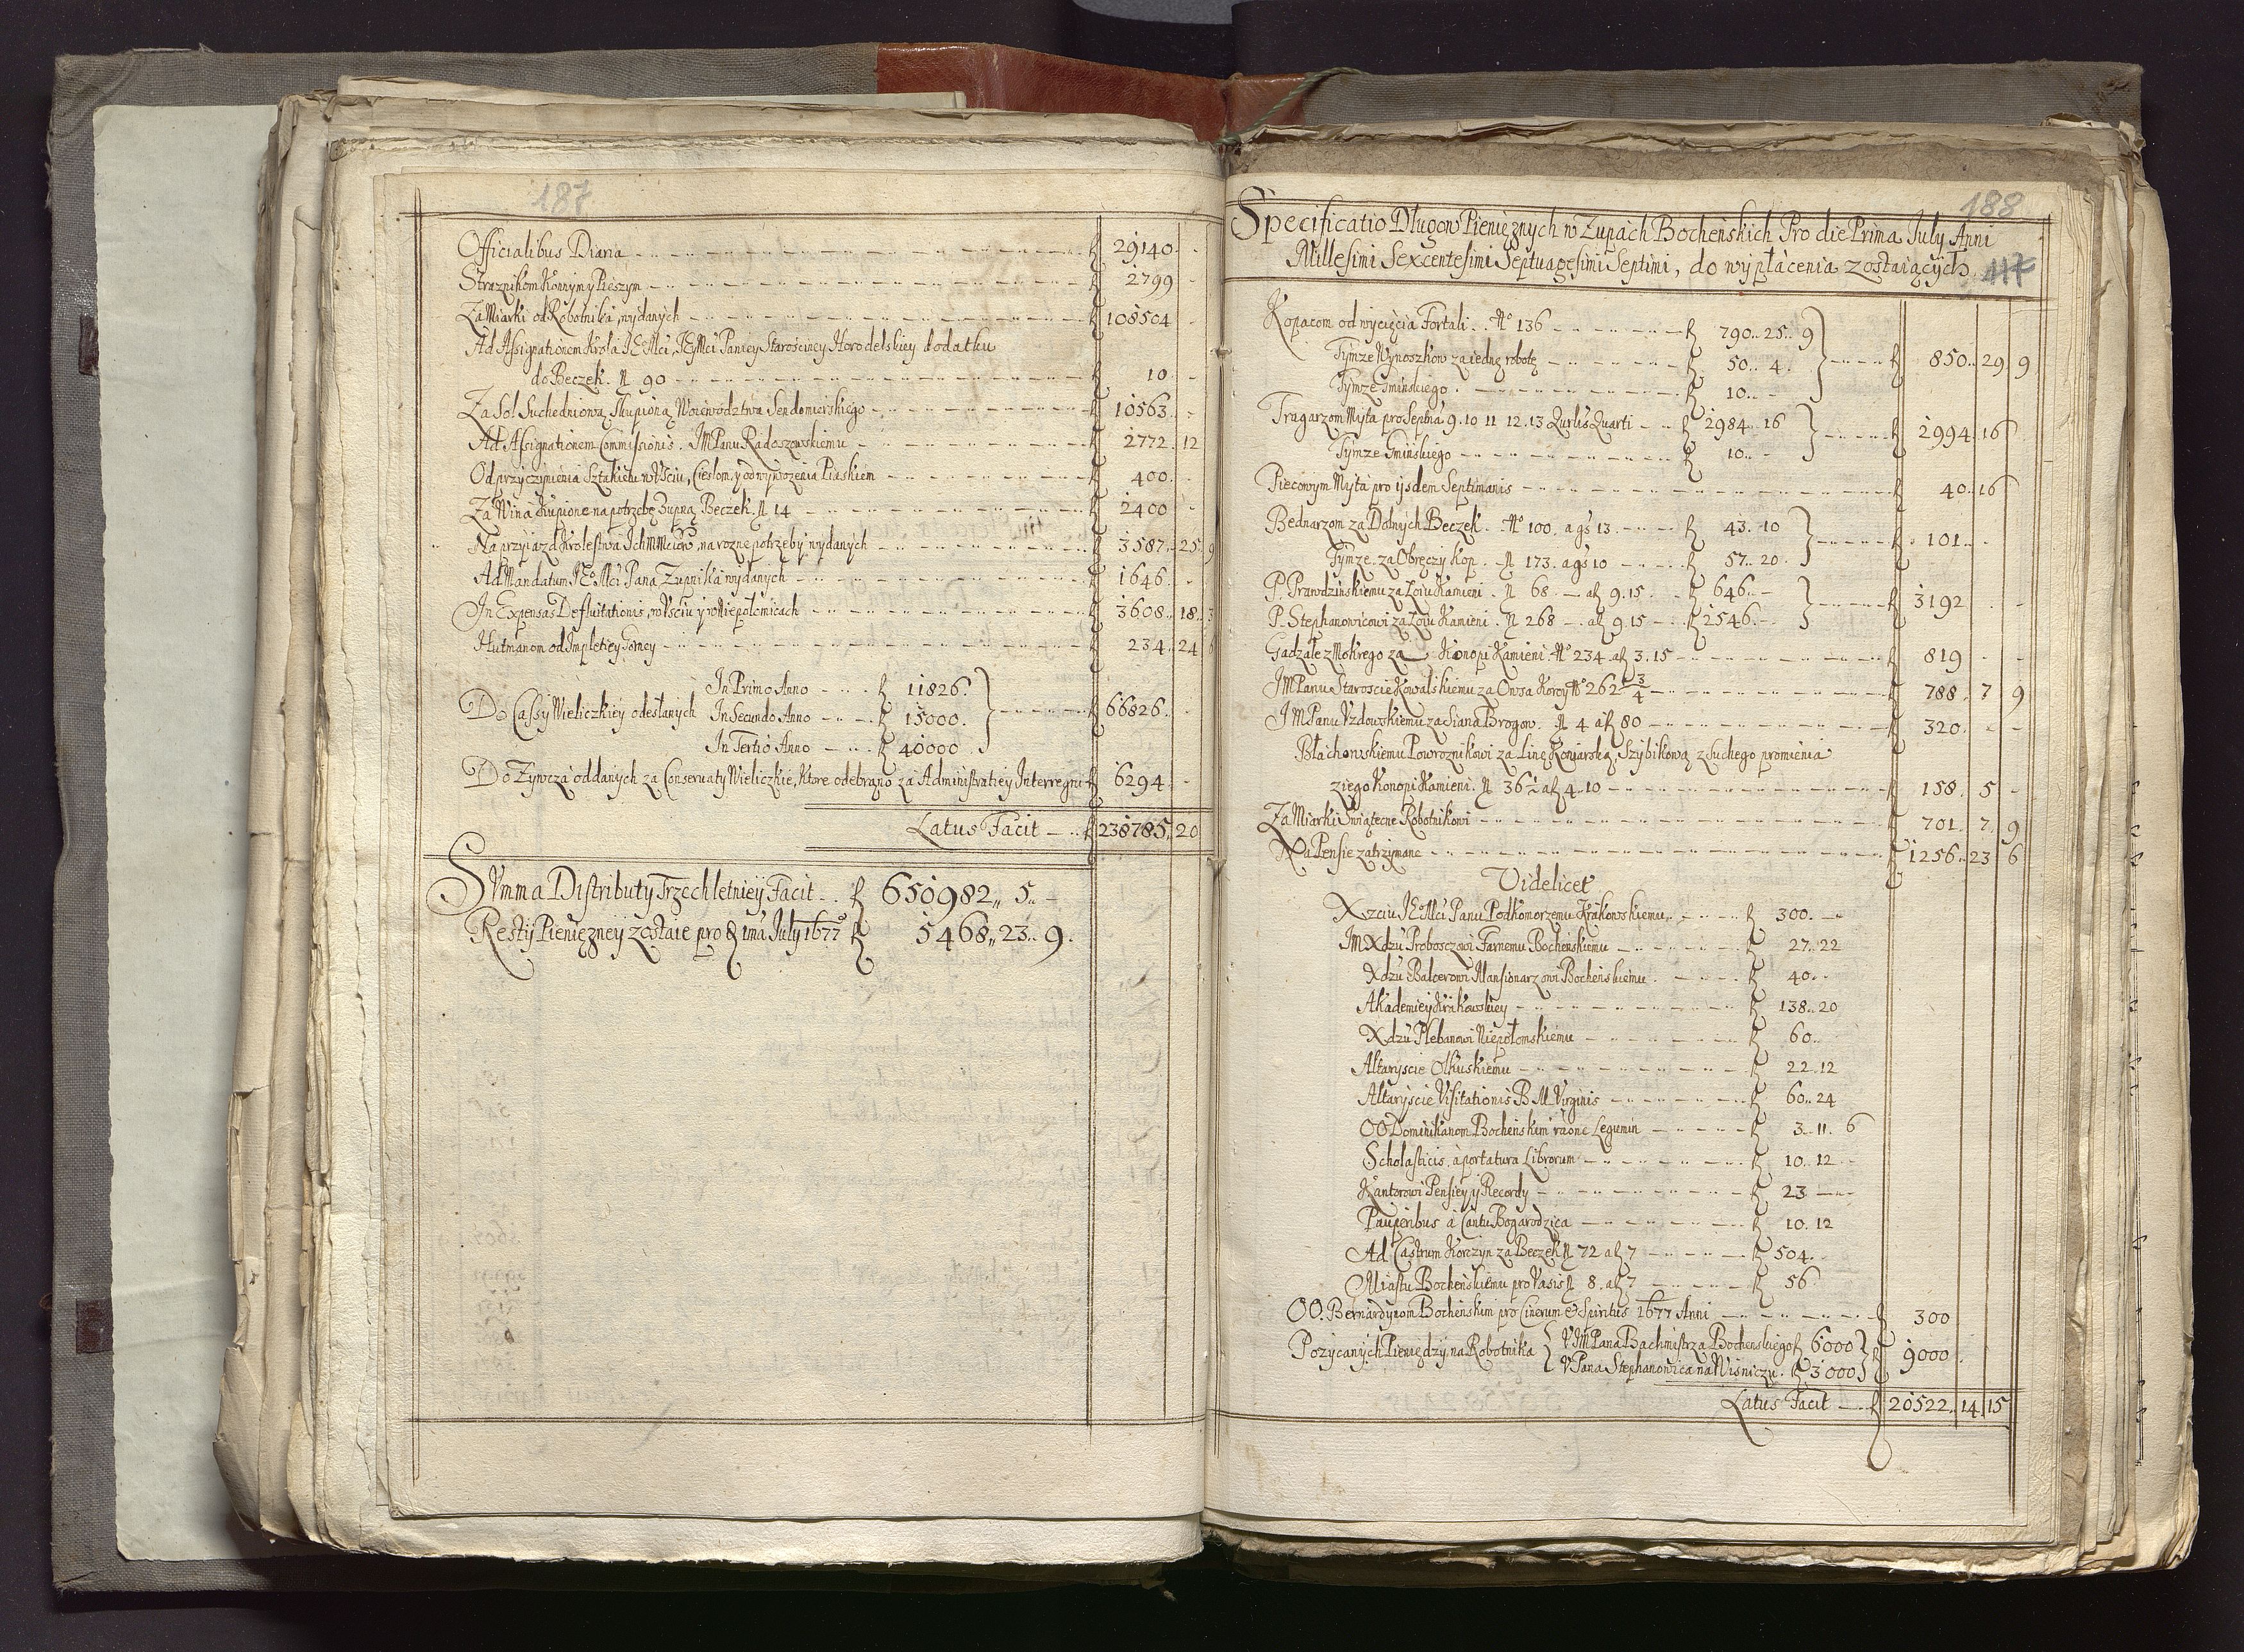 187
Officialibus Diaria f 29140
Straznikom Konnym y Pieszym f 2799
Za Miarki od Robotnika, wydanych f 108504
Ad Assignationem Krola JEo Mci, JEy Mci Paniey Starosciney Horodelskiey dodatku
do Beczek. N 90 f 10
Za Sol Suchedniową Skupioną Woiewodztwa Sendomirskiego f 10563
Ad Assignationem Commissionis. JM Panu Radoszowskiemu f 2772 12
Od przyczynienia Sztakietu w Vsciu, Cieslom, y od wywozenia Piaskiem f 400
Za Wina Kupione na potrzebę Zupną Beczek. N 14 f 2400
Na przyiazd Krolestwa Ichmmciow, na rozne potrzeby wydanych f 3587 25 9
Ad Mandatum JEo Mci Pana Zupnika wydanych f 1646
In Expensas Defluitationis, w Vsciu y w Niepołomicach f 3608 18 3
Hutmanom od Impletiey Gorney f 234 24 6
In Primo Anno f 11826
Do Cassy Wieliczkiey odesłanych In Secundo Anno f 15000 f 66826
In Tertio Anno f 40000
Do Zywcza oddanych za Conservaty Wieliczkie, Ktore odebrano za Administratiey Interregni f 6294
Latus Facit f 238785 20
Summa Distributy Trzechletniey Facit f 650982 5
Resty Pieniężney zostaie pro 1ma July 1677 f 5468 23 9
188
Specificatio Długow Pieniężnych w Zupach Bochenskich Pro die Prima July Anni
Millesimi Sexcentesimi Septuagesimi Septimi, do wypłacenia zostaiących. 117
Kopacom od wycięcia Fortali No 136 f 790 25 9
Tymze Wynoszkow za iednę robotę f 50 4 f 850 29 9
Tymze Gminskiego f 10
Tragarzom Myta pro Septna 9. 10 11 12. 13 Qurlis Quarti f 2984 16 f 2994 16
Tymze Gminskiego f 10
Piecowym Myta pro ijsdem Septimanis f 40 16
Bednarzom za Dolnych Beczek No 100. a gs 13 f 43 10 f 101
Tymze za Obręczy Kop N 173. a gs 10 f 57 20
P. Prawdzinskiemu za Łoiu Kamieni N 68 af 9. 15 f 646 f 3192
P. Stephanowicowi za Łoiu Kamieni N 268 af 9 15 f 2546
Gadzale z Mokrego za Konopi Kamieni No 234 af 3. 15 f 819
JM Panu Staroscie Kowalskiemu za Owsa Korcy No 262 3/4 f 788 7 9
JM Panu Vzdowskiemu za Siana Brogow N 4 af 80 f 320
Błachowskiemu Powroznikowi za Linę Koniarską, Szybikową z Suchego promienia
ziego Konopi Kamieni N 36 1/2 af 4 10 f 158 5
Za Miarki Swiątecne Robotnikowi f 701 7 9
Na Pensie zatrzymane f 1256 23 6
Videlicet
Xzciu JEo Mci Panu Podkomorzemu Krakowskiemu f 300
JM Xdzu Proboszczowi Farnemu Bochenskiemu f 27 22
Xdzu Balcerowi Mansionarzowi Bochenskiemu f 40
Akademiey Krakowskiey f 138 20
Xdzu Plebanowi Niepołomskiemu f 60
Altaryscie Olkuskiemu f 22 12
Altaryscie Visitationis B M Virginis f 60 24
OO Dominikanom Bochenskim raone Legumin f 3 11 6
Scholasticis a portatura Librorum f 10 12
Kantorowi Pensiey y Recordy f 23
Pauperibus a Cantu Bogarodzica f 10. 12
Ad Castrum Korczyn za Beczek N 72 af 7 f 504
Miastu Bochenskiemu pro Vasis N 8. af 7 f 56
OO. Bernardynom Bochenskim pro Cinerum & Spiritus 1677 Anni f 300
Pozycanych Pieniędzy na Robotnika V JM Pana Bachmistrza Bochenskiego f 6000 f 9000
V Pana Stephanowica na Wisniczu f 3000
Latus Facit f 20522 14 15